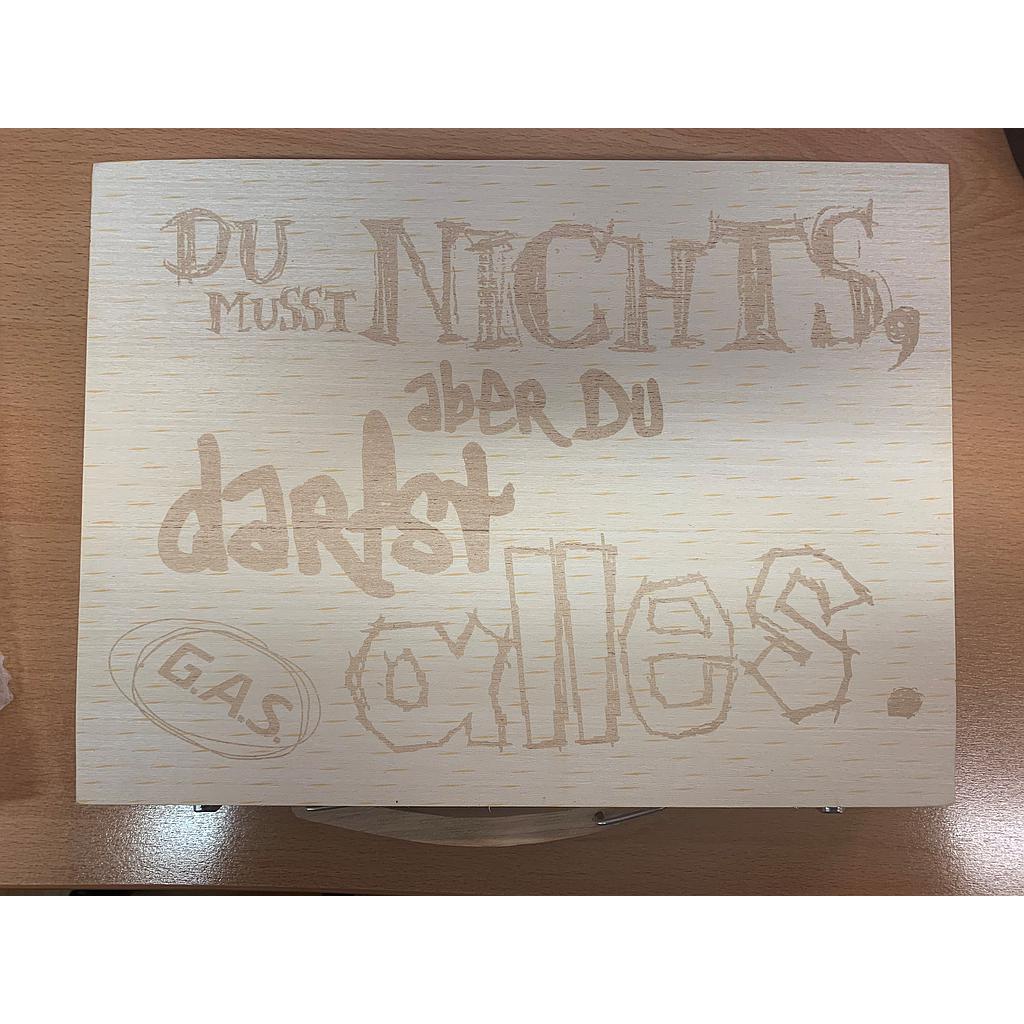 DU
MUSST NICHTS,
aber DU
darfst
alles.
G.A.S.